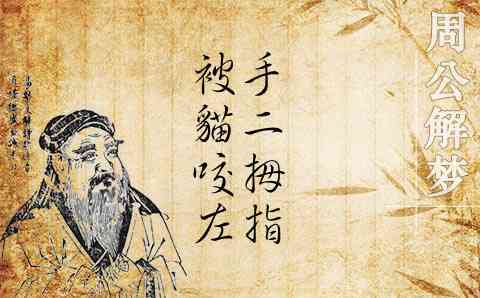 周公解梦
被貓咬左
手二拇指